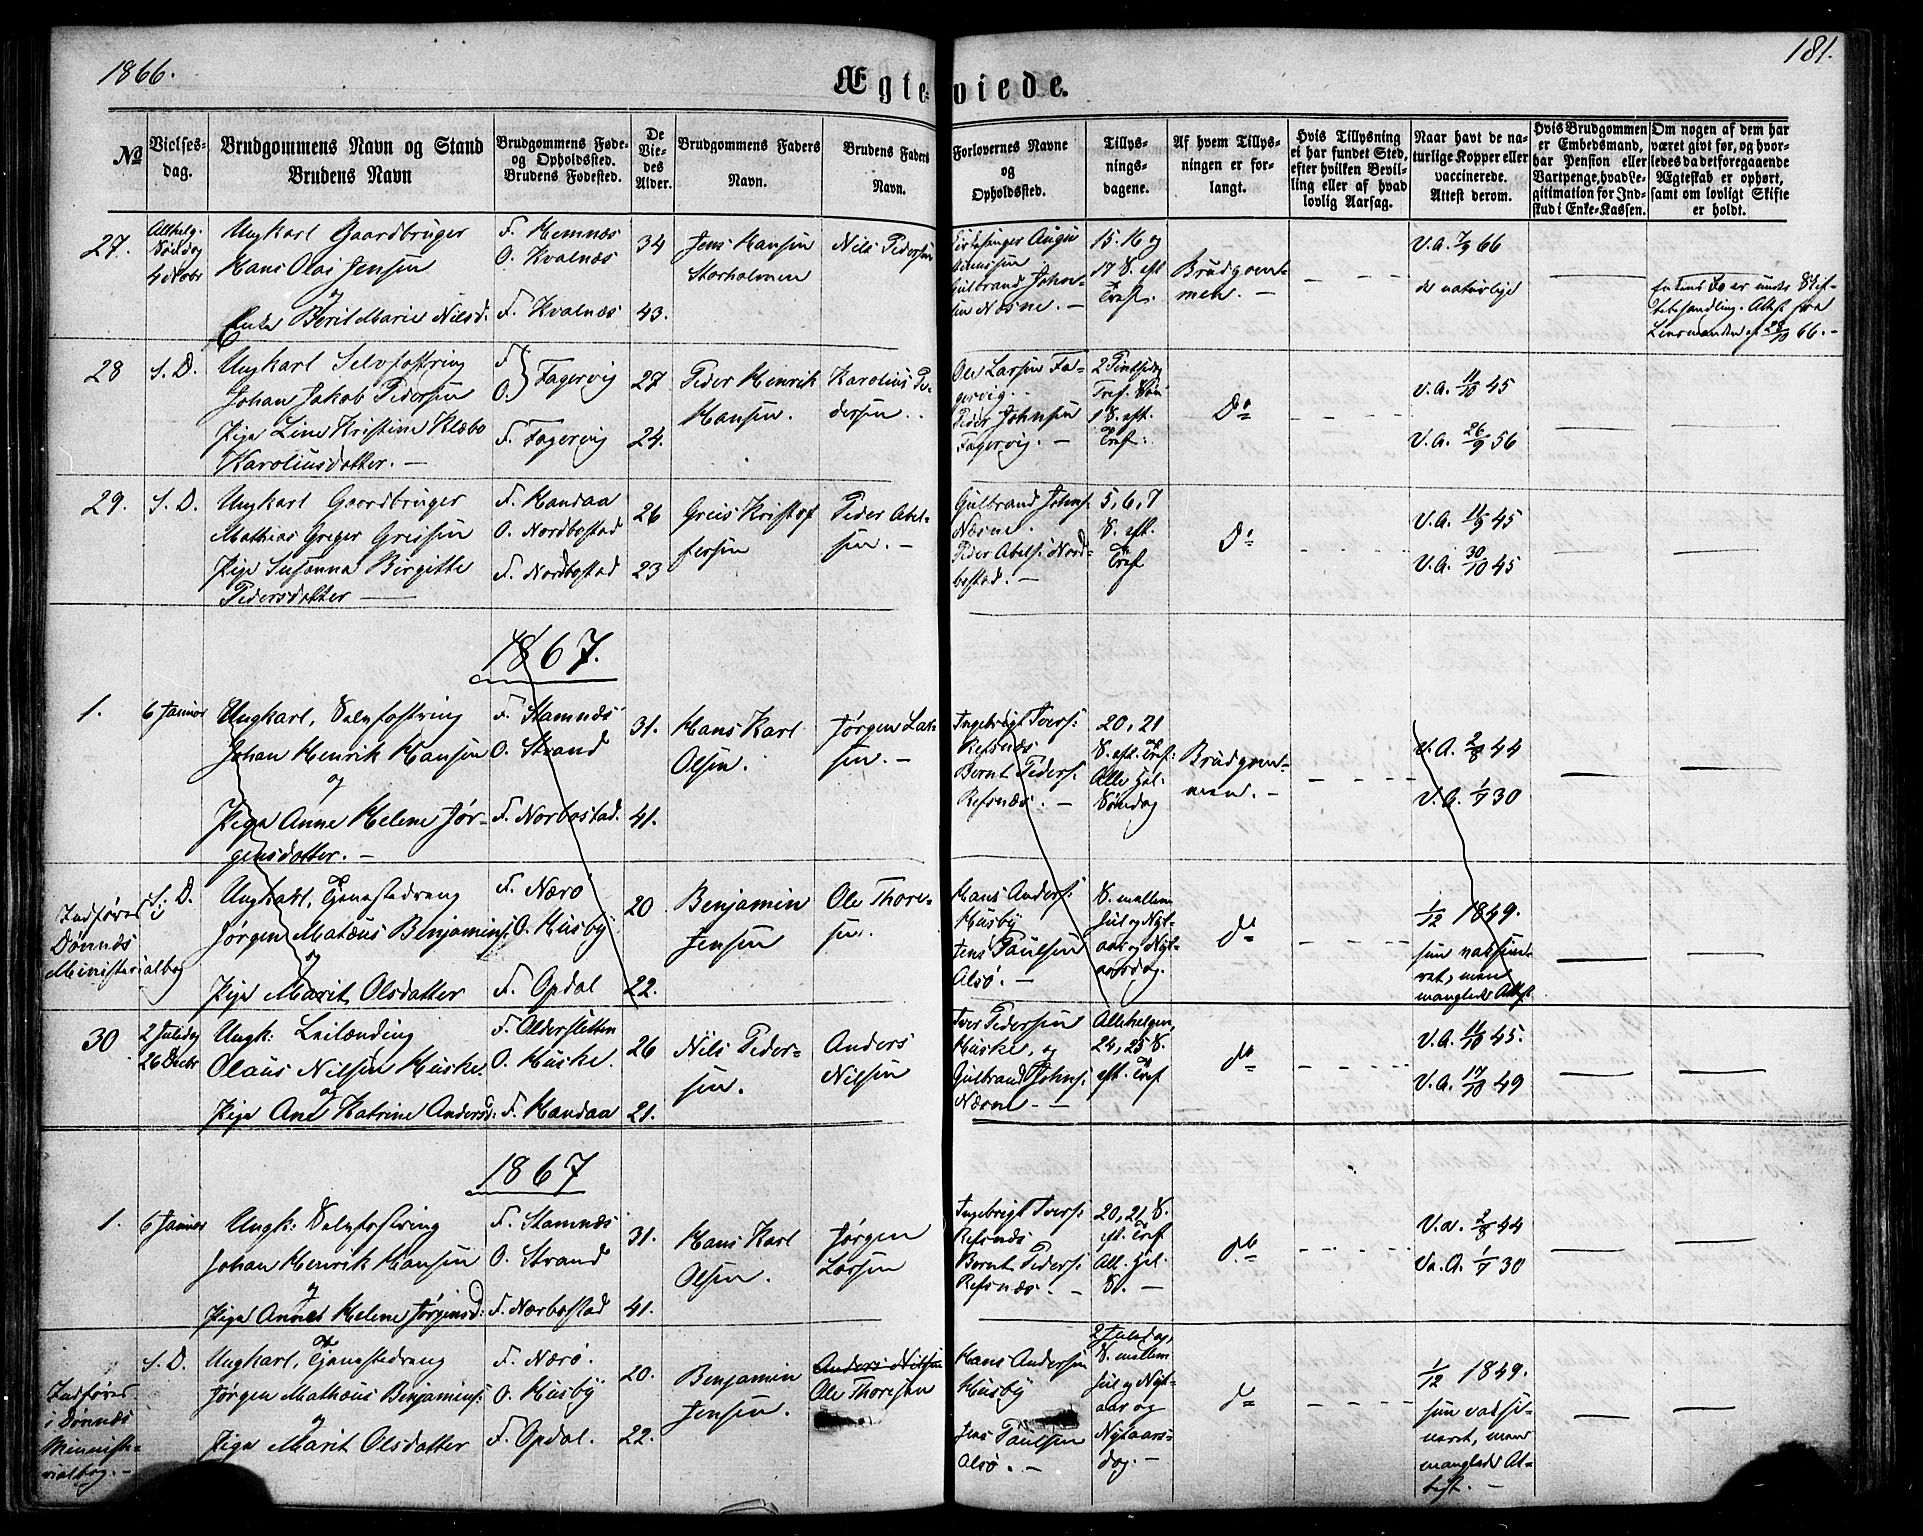 1866.
181.
Ægteviede.
No
Vielses-
dag.
Brudgommens Navn og Stand
Brudens Navn
Brudgommens Føde-
og Opholdssted.
Brudens Fødested.
De
Vie-
des
Alder.
Brudgommens Faders
Navn.
Brudens Faders
Navn.
Forlovernes Navne
og
Opholdssted.
Tillys-
nings-
dagene.
Af hvem Tillys-
ningen er for-
langt.
Hvis Tillysning
ei har fundet Sted,
efter hvilken Bevil-
ling eller af hvad
lovlig Aarsag.
Naar havt de na-
turlige Kopper eller
vaccinerede.
Attest derom.
Hvis Brudgommen
er Embedsmand,
har Pension eller
Vartpenge, hvad Le-
gitimation for Ind-
skud i Enke-Kassen.
Om nogen af dem har
været givt før, og hvor-
ledes da det foregaaende
Ægteskab er ophørt,
samt om lovligt Skifte
er holdt.
27.
Allhelg.
Søndag
4 Novbr
Ungkarl Gaardbruger
Hans Olai Jensen
og
Enke Berit Marie Nilsd.
F. Hemnæs
O. Kvalnæs
F. Kvalnæs
34
43.
Jens Hansen
Storholmen
Nils Pedersen
Gulbrand John-
sen Næsne. -
15. 16 og
17 S. eft
Tref.
Brudgom-
men. -
V.A. 7/9 66
de naturlige
Enkens Bo er under Skif-
tebehandling. Attest fra
Lensmanden af 28/10 66. -
28
S. D.
Ungkarl Selvfostring
Johan Jakob Pedersen
Pige Line Kristine Klæbo
Karoliusdatter. -
F.
O. } Fagervig
F. Fagervig
27
24.
Peder Henrik
Hansen.
Karolius Pe-
dersen.
Ole Larsen Fa-
gervig.
Peder Johnsen
Fagervig. -
2 Pintsedag
Tref. Søn
1 S. eft.
Tref.
Do
V.A. 11/10 45
V.A. 26/9 56
29.
S. D.
Ungkarl Gaardbruger
Mathias Greger Greisen
Pige Susanna Birgitte
Pedersdatter -
F. Handaa
O. Nordbostad
F. Nordbostad
26
23
Greis Kristof
fersen
Peder Abel-
sen. -
Gulbrand Johns.
Næsne.
Peder Abels. Nord-
bostad. -
5, 6, 7
S. eft.
Tref
Do
V.A. 11/9 45
V.A. 30/10 45
1867.
1.
6 Januar
Ungkarl, Selvfostring
Johan Henrik Hansen
og
Pige Anne Helene Jør-
gensdatter. -
F. Stamnæs
O. Strand
F. Norbostad.
31.
41.
Hans Karl
Olsen.
Jørgen Lar-
sen. -
Ingebrigt Ivers.
Refsnæs
Bernt Peders.
Refsnæs. -
20, 21
S. eft. Tref.
Alle Hel.
Søndag
Brudgom-
men. -
V.A. 2/8 44
V.A. 1/7 30
Indføres i
Dønnæs
Ministerialbog
S. D.
Ungkarl, Tjenestedreng
Jørgen Matæus Benjamins.
og
Pige Marit Olsdatter
F. Nærø
O. Husby
F. Opdal
20
22.
Benjamin
Jensen
Ole Thore-
sen.
Hans Anders.
Husby
Jens Paulsen
Alsø. -
S. mellem
Jul og Nyt-
aar og Nyt-
aarsdag.
do
1/12 1849.
mangler Attest.
30
2 Juledag
26 Decbr
Ungk: Leilænding
Olaus Nilsen Huske.
og
Pige Ane Katrine Andersd:
F. Aldersletten
O. Huske.
F. Handaa
26
21.
Nils Peder-
sen.
Anders
Nilsen
Iver Pedersen
Huske, og
Gulbrand Johns.
Næsne -
Allehelgen,
24, 25 S.
eft. Tref
do
V.A. 11/10 45.
V.A. 17/10 49
1867
1.
6 Januar
Ungk: Selvfostring
Johan Henrik Hansen
og
Pige Anne Helene Jørgensd:
F. Stamnæs
O. Strand
F. Norbostad
31.
41.
Hans Karl
Olsen.
Jørgen
Larsen
Ingebrigt Ivers.
Refsnæs
Bernt Peders.
Refsnæs. -
20, 21 S.
eft. Tref
All. Hel.
S. -
do
V.A. 2/8 44
Va. A. 1/7 30
Indføres
i Dønnæs
Ministe-
rialbog. -
S. D.
Ungkarl, Tjenestedreng
Jørgen Mathæus Benjamins.
og
Pige Marit Olsdatter
F. Nærø.
O. Husby
F. Opdal.
20.
22.
Benjamin
Jensen.
Anders Nilsen
Ole Thoresen
Hans Andersen
Husby
Jens Paulsen
Alsø. -
2 Juledag,
S. mellem
Jul og Nyt-
aar og
Nytaars-
dag. -
do
1/12 1849.
mangler At-
test. -